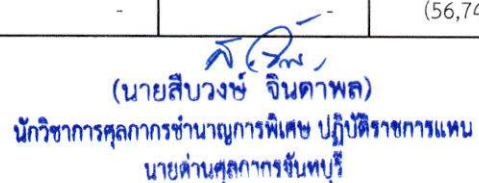 - - (56,74
(นายสืบวงษ์ จินดาพล)
นักวิชาการศุลกากรชำนาญการพิเศษ ปฏิบัติราชการแทน
นายด่านศุลกากรจันทบุรี